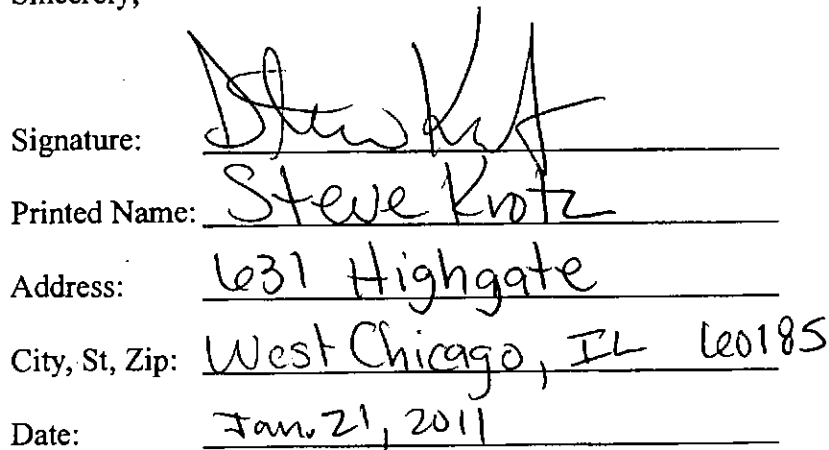 Sincerely,
Signature: Steve Krotz
Printed Name: Steve Krotz
Address: 631 Highgate
City, St, Zip: West Chicago, IL 60185
Date: Jan. 21, 2011